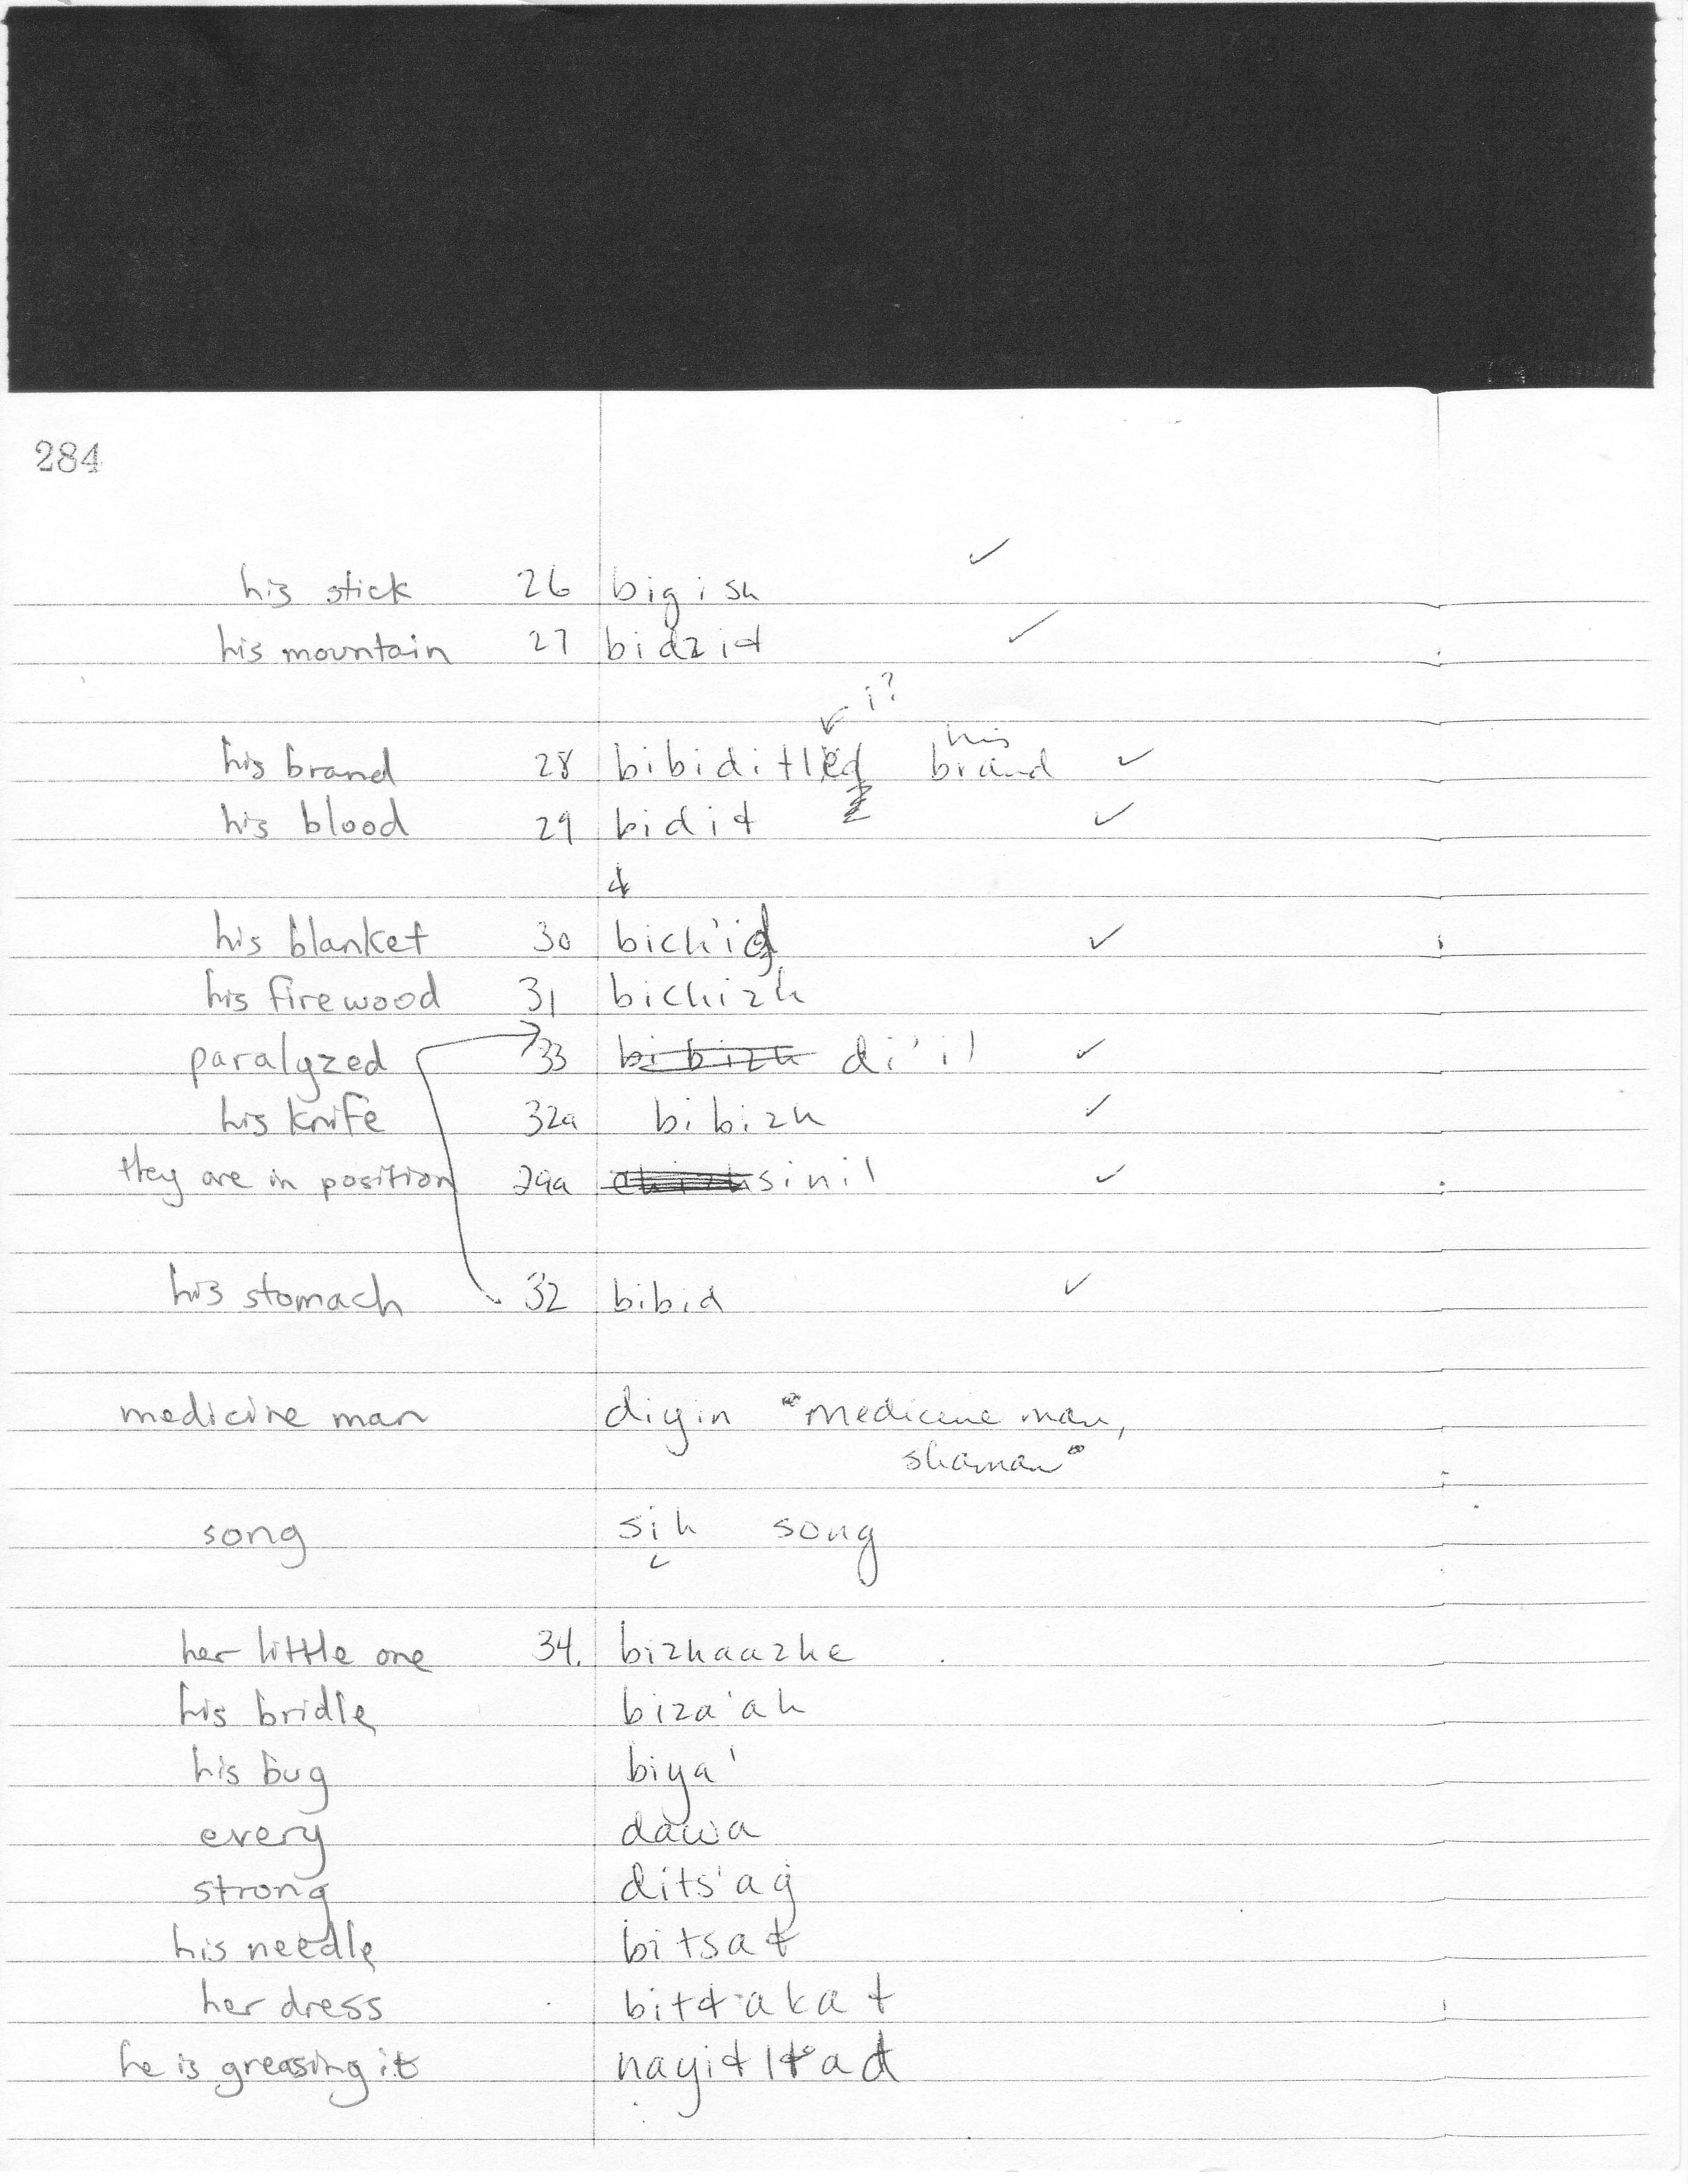 284
his stick 26 bigish ✓
his mountain 27 bidził ✓
i?
his brand 28 bibiditł his brand ✓
his blood 29 bidił ✓
ł
his blanket 30 bich'id ✓
his firewood 31 bichizh
paralyzed 33 bibizh di'il ✓
his knife 32a bibizh ✓
they are in position 29a sinil ✓
his stomach 32 bibid ✓
medicine man diyin "medicine man,
shaman"
song sih song
her little one 34. bizhaazhe
his bridle biza'ah
his bug biya'
every dawa
strong dits'ag
his needle bitsał
her dress bitł'akał
he is greasing it